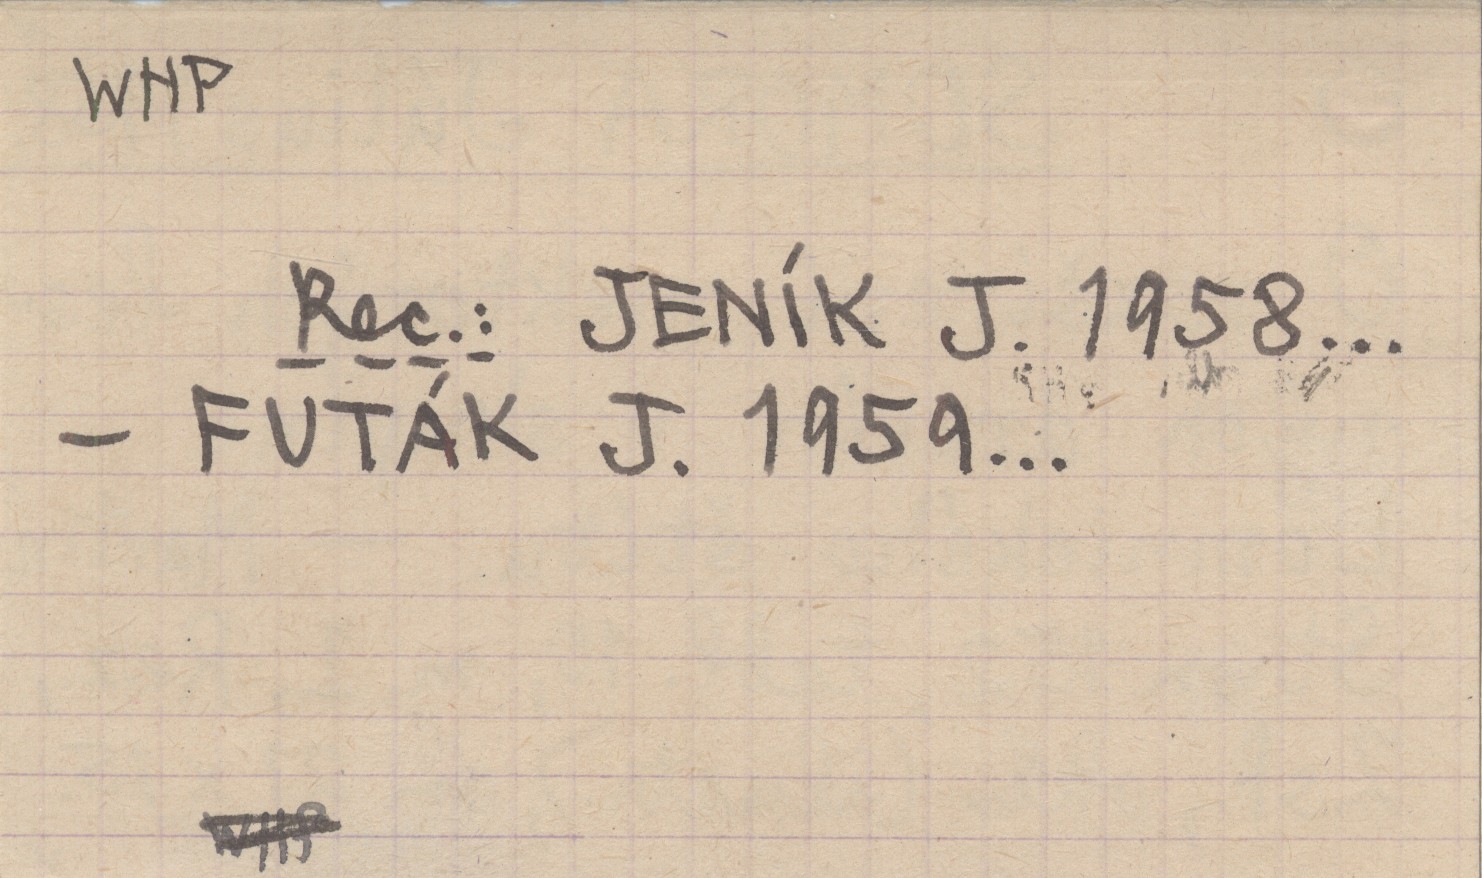 WHP
Rec.: JENÍK J. 1958...
– FUTÁK J. 1959...